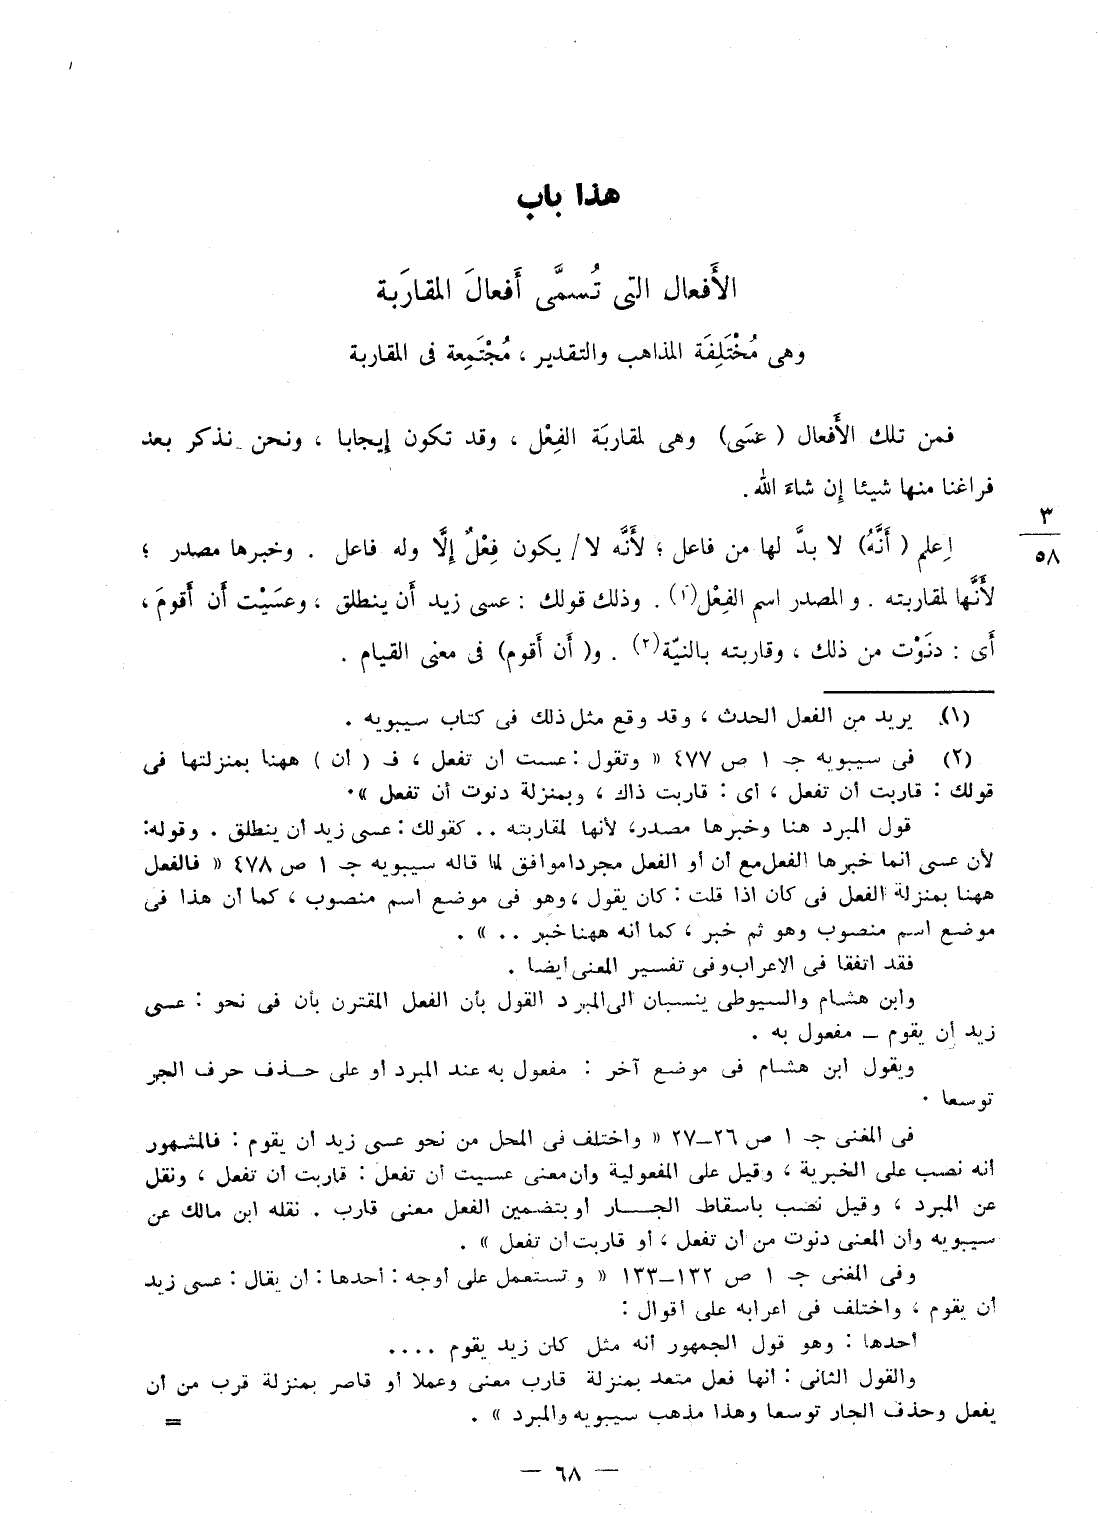 هذا باب
الأَفعال التى تُسمَّى أَفعالَ المقارَبة
وهى مُخْتَلِفَة المذاهب والتقدير ، مُجْتَمِعة فى المقاربة
فمن تلك الأَفعال ( عسَى) وهى لمقاربَة الفِعْل ، وقد تكون إِيجابا ، ونحن نذكر بعد
فراغنا منها شيئا إِن شاءَ الله .
٣
٥٨
اِعلم ( أَنَّهُ) لا بدَّ لها من فاعل ؛ لأَنَّه لا / يكون فِعْلٌ إِلَّا وله فاعل . وخبرها مصدر ؛
لأَنَّها لمقاربته . والمصدر اسم الفِعْل(١) . وذلك قولك : عسى زيد أَن ينطلق ، وعسَيْت أَن أَقومَ ،
أَى : دنَوْت من ذلك ، وقاربته بالنيّة(٢) . و( أَن أَقوم) فى معنى القيام .
(١) يريد من الفعل الحدث ، وقد وقع مثل ذلك فى كتاب سيبويه .
(٢) فى سيبويه جـ ١ ص ٤٧٧ « وتقول : عست أن تفعل ، فـ ( أن ) ههنا بمنزلتها فى
قولك : قاربت أن تفعل ، أى : قاربت ذاك ، وبمنزلة دنوت أن تفعل » .
قول المبرد هنا وخبرها مصدر، لأنها لمقاربته .. كقولك : عسى زيد أن ينطلق . وقوله:
لأن عسى انما خبرها الفعل مع أن أو الفعل مجردا موافق لما قاله سيبويه جـ ١ ص ٤٧٨ « فالفعل
ههنا بمنزلة الفعل فى كان اذا قلت : كان يقول ، وهو فى موضع اسم منصوب ، كما أن هذا فى
موضع اسم منصوب وهو ثم خبر ، كما أنه ههنا خبر .. » .
فقد اتفقا فى الاعراب وفى تفسير المعنى أيضا .
وابن هشام والسيوطى ينسبان الى المبرد القول بأن الفعل المقترن بأن فى نحو : عسى
زيد أن يقوم – مفعول به .
ويقول ابن هشام فى موضع آخر : مفعول به عند المبرد أو على حذف حرف الجر
توسعا .
فى المغنى جـ ١ ص ٢٦–٢٧ « واختلف فى المحل من نحو عسى زيد أن يقوم : فالمشهور
أنه نصب على الخبرية ، وقيل على المفعولية وأن معنى عسيت أن تفعل : قاربت أن تفعل ، ونقل
عن المبرد ، وقيل نصب باسقاط الجار أو بتضمين الفعل معنى قارب . نقله ابن مالك عن
سيبويه وأن المعنى دنوت من أن تفعل ، أو قاربت أن تفعل » .
وفى المغنى جـ ١ ص ١٣٢–١٣٣ « وتستعمل على أوجه : أحدها : أن يقال : عسى زيد
أن يقوم ، واختلف فى اعرابه على أقوال :
أحدها : وهو قول الجمهور أنه مثل كان زيد يقوم ....
والقول الثانى : أنها فعل متعد بمنزلة قارب معنى وعملا أو قاصر بمنزلة قرب من أن
يفعل وحذف الجار توسعا وهذا مذهب سيبويه والمبرد » .
=
— ٦٨ —